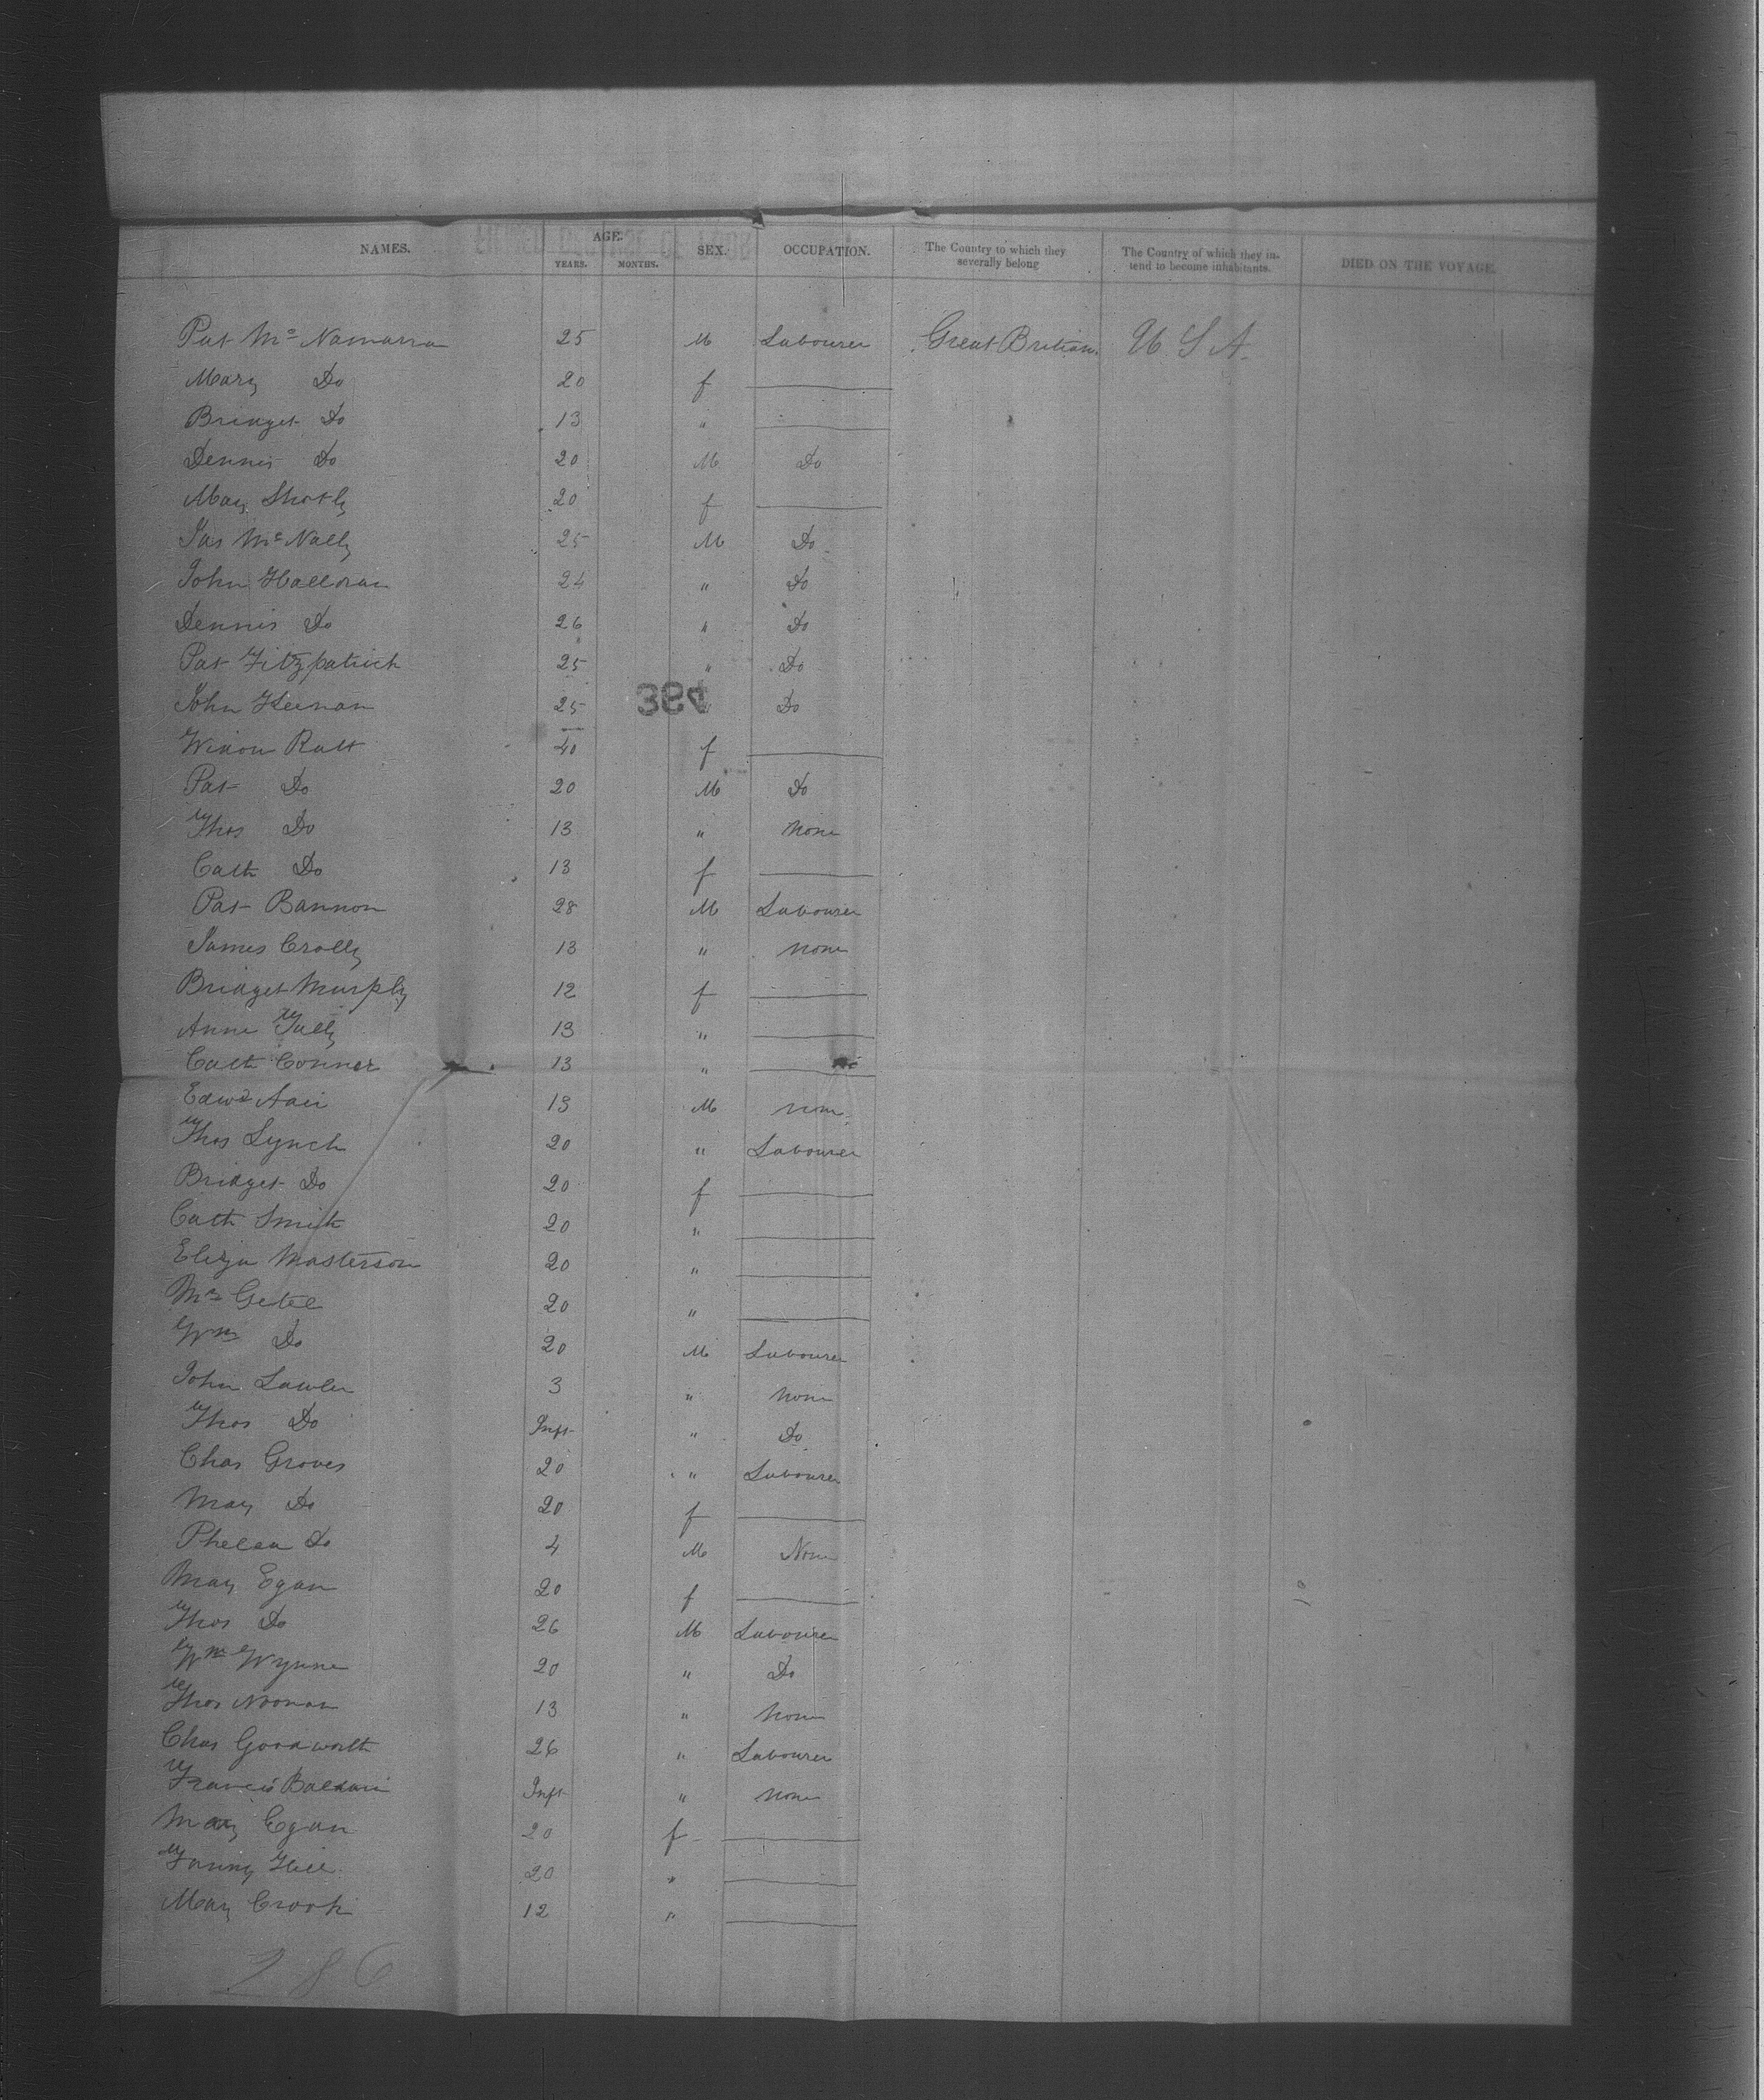 NAMES. AGE. YEARS. MONTHS. SEX. OCCUPATION. The Country to which they severally belong The Country of which they intend to become inhabitants. DIED ON THE VOYAGE.
Pat McNamarra 25 M Labourer Great Britian U S A
Mary Do 20 f
Bridget Do 13 "
Dennis Do 20 M Do
Mary 20 f
Jas McNally 25 M Do
John Halloran 24 " Do
Dennis Do 26 " Do
Pat Fitzpatrick 25 " Do
John Keenan 25 " Do
384
Widow Ratt 40 f
Pat Do 20 M Do
Thos Do 13 " None
Cath Do 13 f
Pat Bannon 28 M Labourer
James Crolly 13 " None
Bridget Murphy 12 f
Anne Tully 13 "
Cath Conner 13 "
Edwd Adair 13 M none
Thos Lynch 20 " Labourer
Bridget Do 20 f
Cath Smith 20 "
Eliza Masterson 20 "
Mrs 20 "
Wm Do 20 M Labourer
John Lawler 3 " None
Thos Do Inft " Do
Chas Groves 20 " Labourer
Mary Do 20 f
Do 4 M None
Mary Egan 20 f
Thos Do 26 M Labourer
Wm Wynne 20 " Do
Thos Noonan 13 " None
Chas Goodworth 26 " Labourer
Francis Inft " None
Mary Egan 20 f
Fanny Hill 20 "
Mary Crook 12 "
286